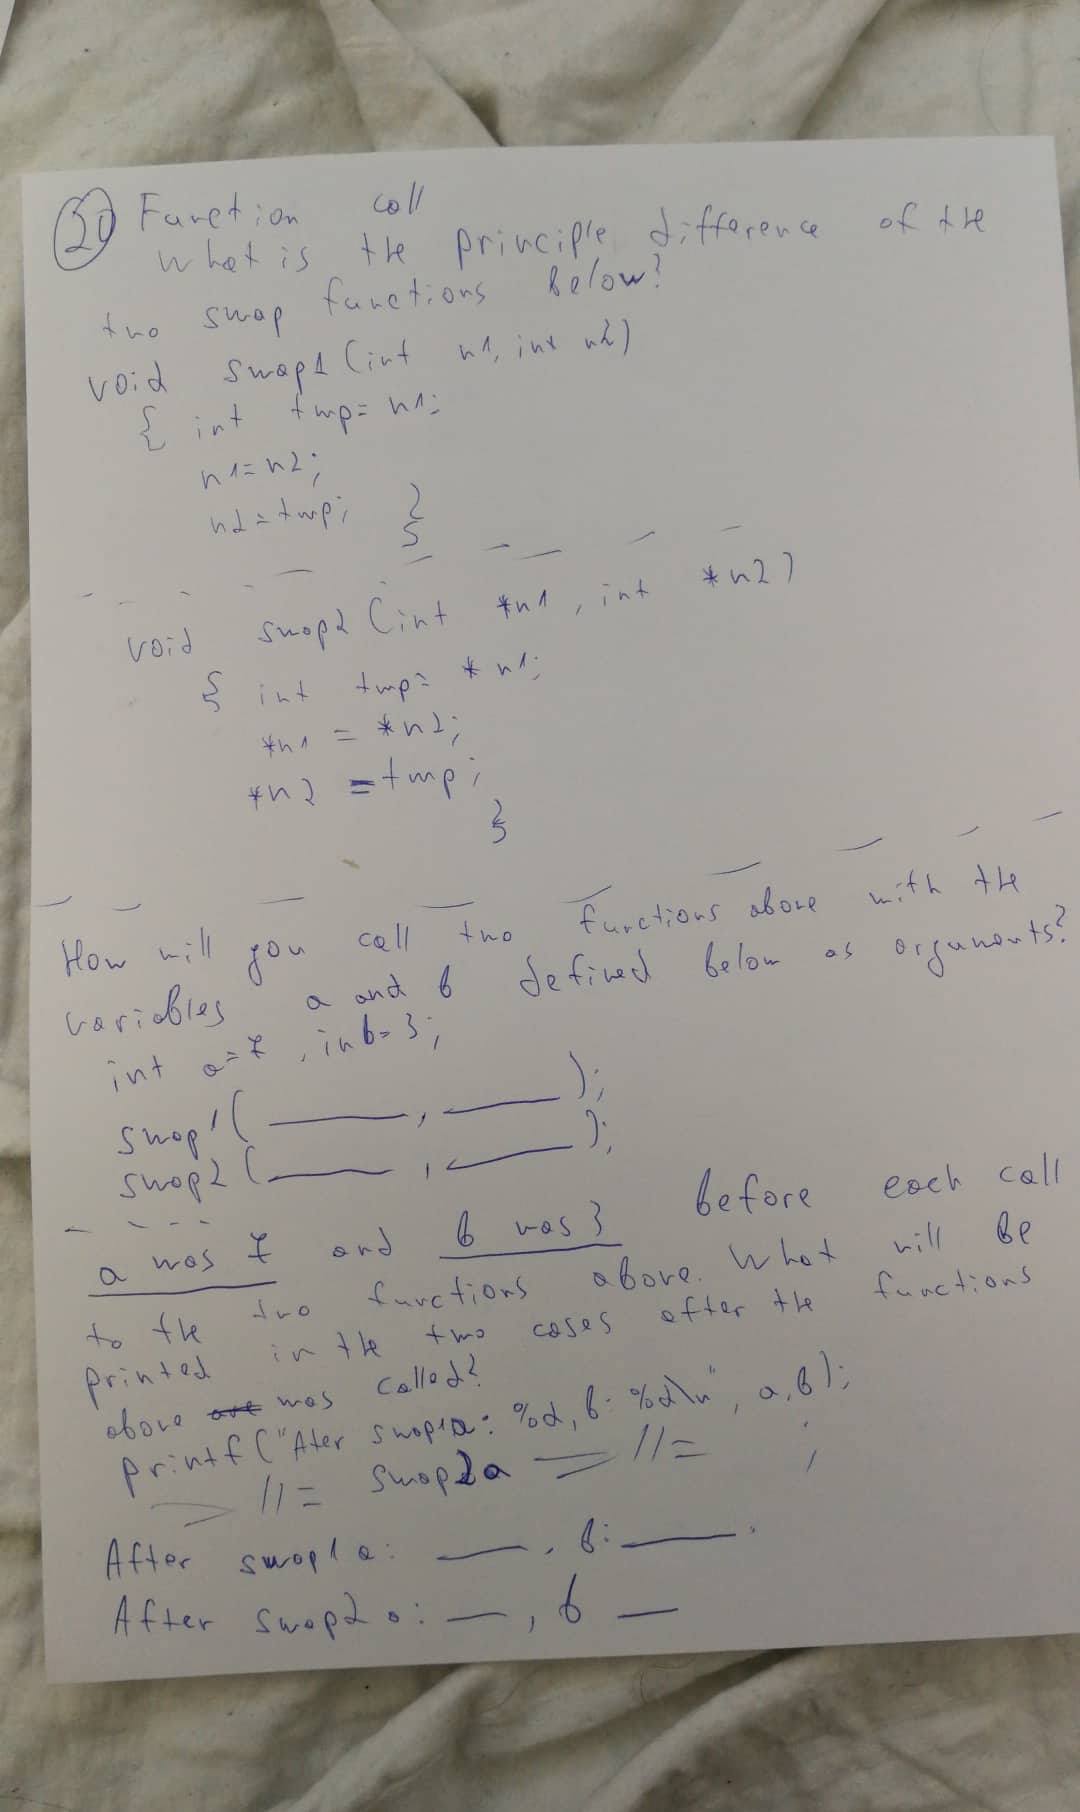 20 Function call
What is the principle difference of the
two swap functions below?
void swap1 (int n1, int n2)
{ int tmp= n1;
n1=n2;
n2=tmp; }
void swap2 (int *n1, int *n2)
{ int tmp= *n1;
*n1 = *n2;
*n2 = tmp;
}
How will you call two functions above with the
variables a and b defined below as arguments?
int a=7, in b=3;
swap1( ____, ____ );
swap2 ( ____, ____ );
a was 7 and b was 3 before each call
to the two functions above. What will be
printed in the two cases after the functions
above was called?
printf ("Ater swap1a: %d, b: %d\n", a,b);
//= swap2a //= ;
After swap1 a: ____, b: ____.
After swap2 a: ____, b ____